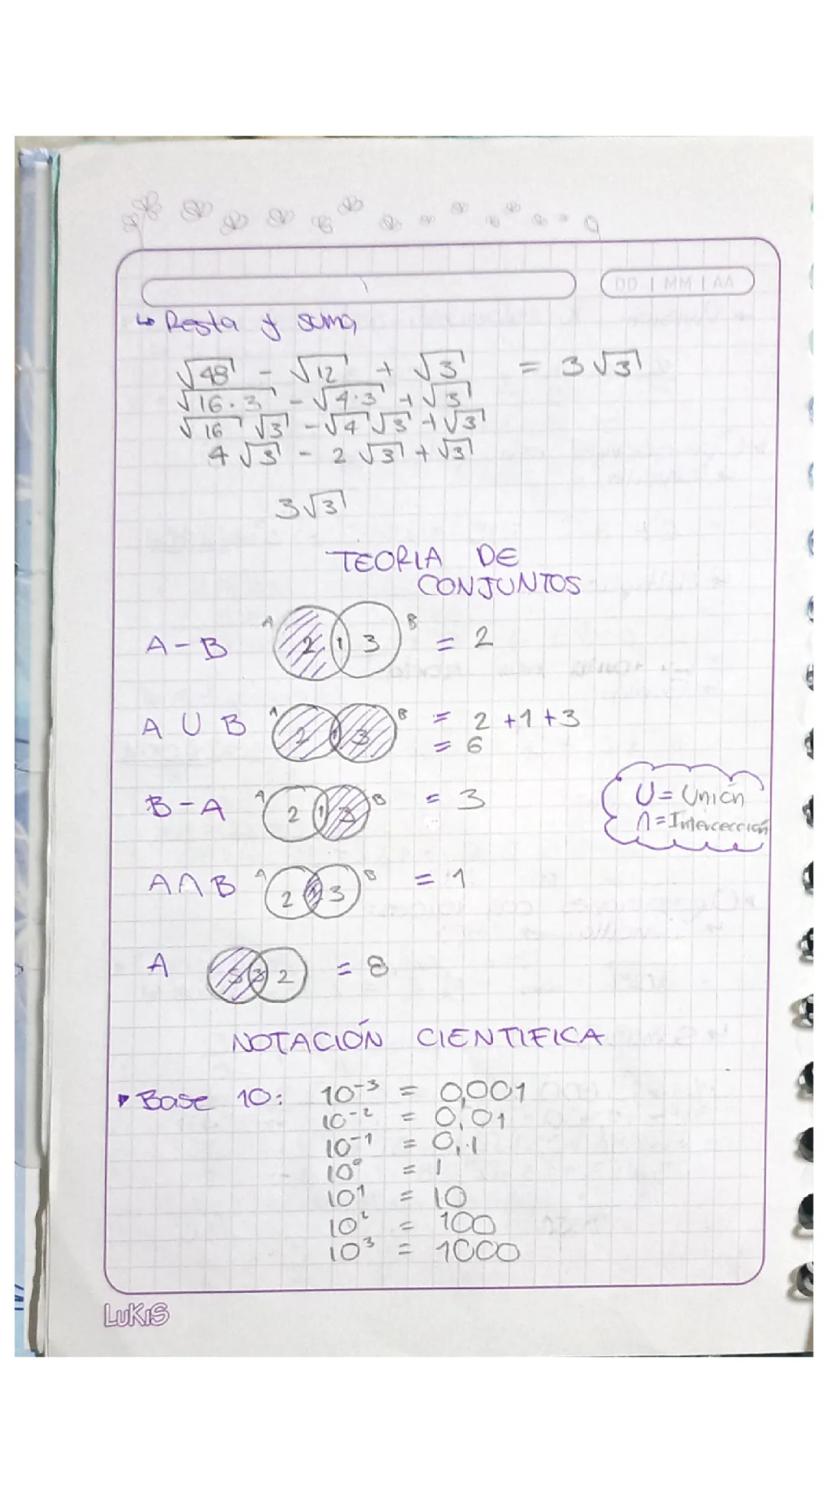 DD | MM | AA
↳ Resta y suma
√48 - √12 + √3 = 3√3
√16·3 - √4·3 + √3
√16 √3 - √4 √3 + √3
4√3 - 2√3 + √3
3√3
TEORIA DE
CONJUNTOS
A-B A 2 1 3 B = 2
A U B A 2 1 3 B = 2+1+3
= 6
B-A A 2 1 3 B = 3
U = Unión
∩ = Intercección
A∩B A 2 1 3 B = 1
A 5 3 2 = 8
NOTACIÓN CIENTIFICA
▸ Base 10: 10⁻³ = 0,001
10⁻² = 0,01
10⁻¹ = 0,1
10⁰ = 1
10¹ = 10
10² = 100
10³ = 1000
LUKIS